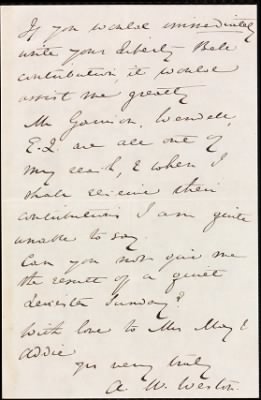 If you would immediately
write your Liberty Bell
contribution, it would
assist me greatly
Mr Garrison, Wendell,
E.Q. are all out of
my reach, & when I
shall receive their
contributions I am quite
unable to say.
Can you not give me
the result of a quiet
Leicester Sunday?
With love to Mrs May &
Addie
yrs very truly
A. W. Weston